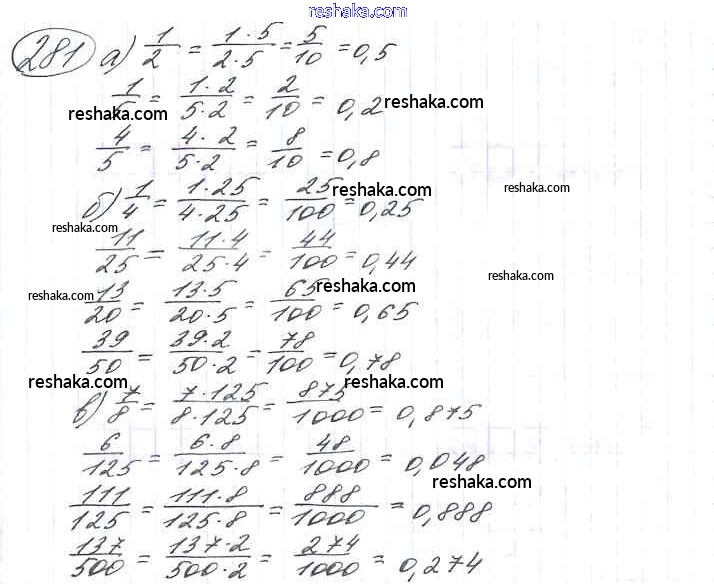 reshaka.com
281 а) 1/2 = 1·5/2·5 = 5/10 = 0,5
1/5 = 1·2/5·2 = 2/10 = 0,2 reshaka.com
reshaka.com
4/5 = 4·2/5·2 = 8/10 = 0,8
б) 1/4 = 1·25/4·25 = 25/100 = 0,25 reshaka.com reshaka.com
reshaka.com
11/25 = 11·4/25·4 = 44/100 = 0,44
reshaka.com reshaka.com
reshaka.com 13/20 = 13·5/20·5 = 65/100 = 0,65
39/50 = 39·2/50·2 = 78/100 = 0,78
reshaka.com reshaka.com
в) 7/8 = 7·125/8·125 = 875/1000 = 0,875
6/125 = 6·8/125·8 = 48/1000 = 0,048
reshaka.com
111/125 = 111·8/125·8 = 888/1000 = 0,888
137/500 = 137·2/500·2 = 274/1000 = 0,274